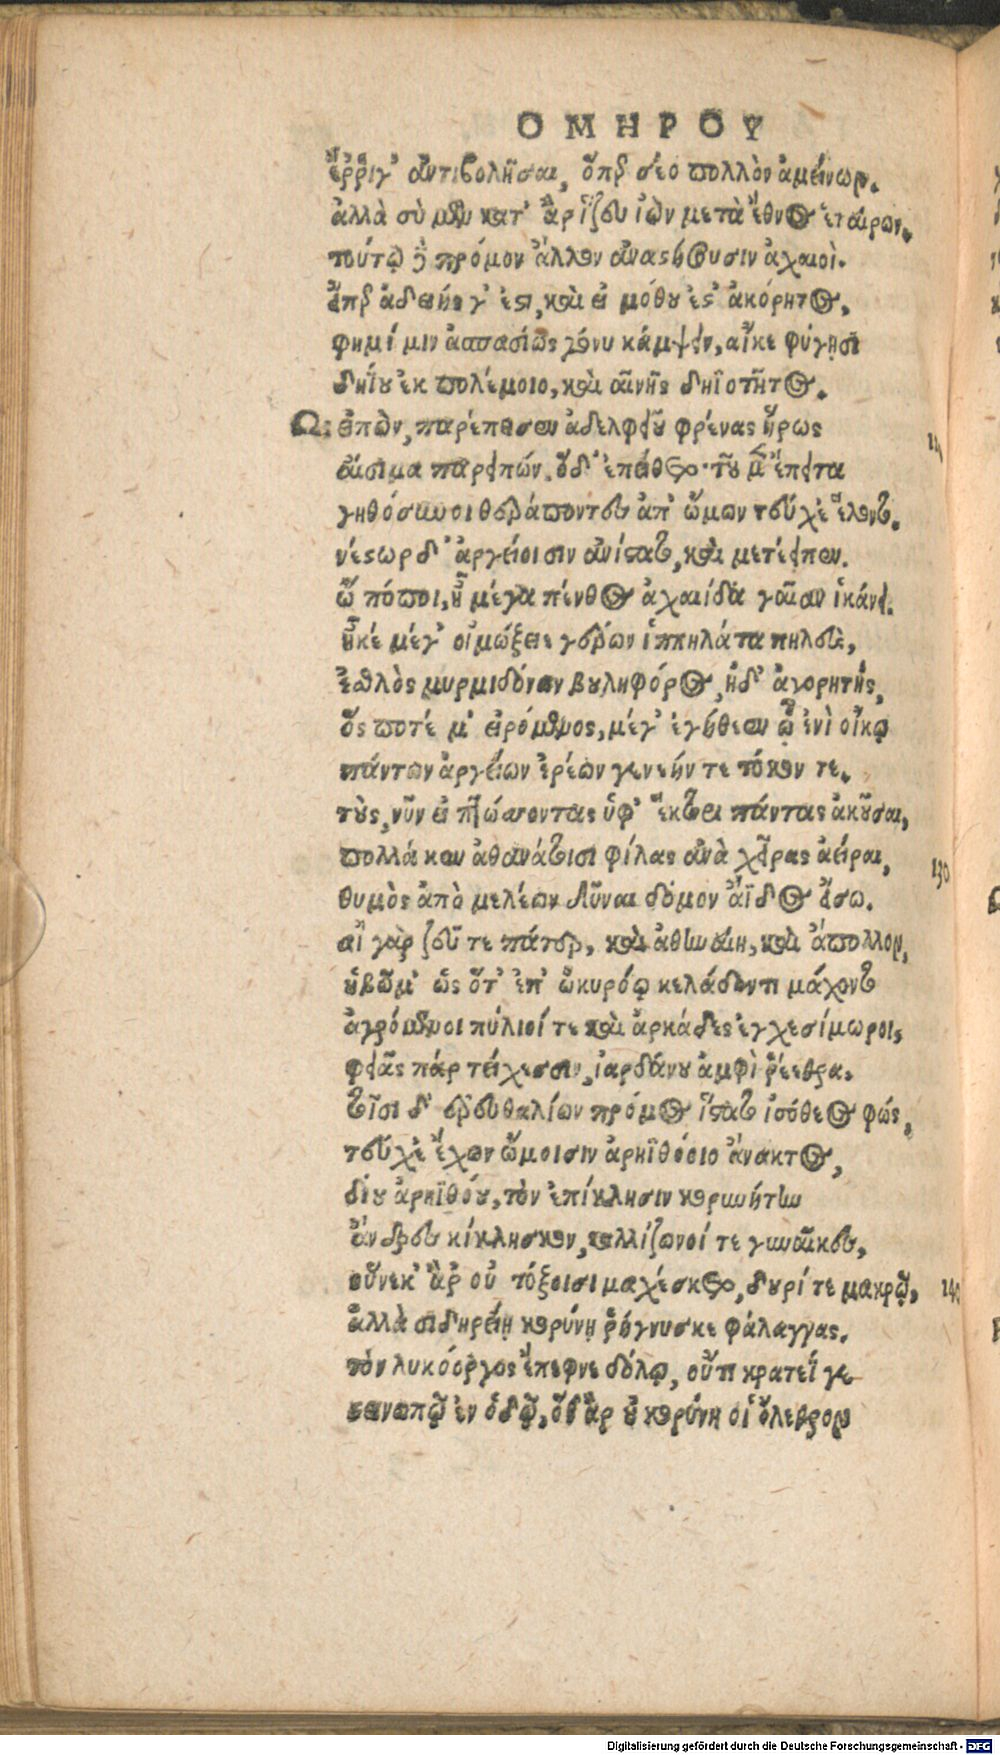 ΟΜΗΡΟΥ
ἔρριγ' ἀντιβολῆσαι, ὅπερ σέο πολλὸν ἀμείνων.
ἀλλὰ σὺ μὲν κατ' ἂρ ἵζευ ἰὼν μετὰ ἔθνος ἑταίρων.
τούτῳ δὲ πρόμον ἄλλον ἀναστήσουσιν ἀχαιοὶ.
εἴπερ ἀδειής γ' ἐστι, καὶ εἰ μόθου ἐστ' ἀκόρητος,
φημί μιν ἀσπασίως γόνυ κάμψειν, αἴκε φύγησι
δηΐου ἐκ πολέμοιο, καὶ αἰνῆς δηϊοτῆτος.
Ως εἰπὼν, παρέπεισεν ἀδελφειοῦ φρένας ἥρως
αἴσιμα παρειπών. ὁ δ' ἐπείθετο. τοῦ μὲν ἔπειτα
γηθόσυνοι θεράποντες ἀπ' ὤμων τεύχε' ἕλοντο.
νέστωρ δ' ἀργείοισιν ἀνίστατο, καὶ μετέειπεν.
ὢ πόποι, ἦ μέγα πένθος ἀχαιίδα γαῖαν ἱκάνει.
ἦ κε μέγ' οἰμώξειε γέρων ἱππηλάτα πηλεὺς,
ἐσθλὸς μυρμιδόνων βουληφόρος, ἠδ' ἀγορητὴς,
ὅς ποτέ μ' εἰρόμενος, μέγ' ἐγήθεεν ᾧ ἐνὶ οἴκῳ
πάντων ἀργείων ἐρέων γενεήν τε τόκον τε.
τοὺς νῦν εἰ πτώσσοντας ὑφ' ἕκτορι πάντας ἀκούσαι,
πολλά κεν ἀθανάτοισι φίλας ἀνὰ χεῖρας ἀείραι,
θυμὸς ἀπὸ μελέων δῦναι δόμον ἄϊδος εἴσω.
130
αἲ γὰρ ζεῦ τε πάτερ, καὶ ἀθηναίη, καὶ ἄπολλον,
ἡβῷμ' ὡς ὅτ' ἐπ' ὠκυρόῳ κελάδοντι μάχοντο
ἀγρόμενοι πύλιοί τε καὶ ἀρκάδες ἐγχεσίμωροι,
φειᾶς πὰρ τείχεσσιν, ἰαρδάνου ἀμφὶ ῥέεθρα.
τοῖσι δ' ἐρευθαλίων πρόμος ἵστατο ἰσόθεος φώς,
τεύχε' ἔχων ὤμοισιν ἀρηϊθόοιο ἄνακτος,
δίου ἀρηϊθόου, τὸν ἐπίκλησιν κορυνήτην
ἄνδρες κίκλησκον, καλλίζωνοί τε γυναῖκες,
οὕνεκ' ἂρ οὐ τόξοισι μαχέσκετο, δουρί τε μακρῷ,
140
ἀλλὰ σιδηρείῃ κορύνῃ ῥήγνυσκε φάλαγγας.
τὸν λυκόοργος ἔπεφνε δόλῳ, οὔτι κρατεΐ γε
στεινωπῷ ἐν ὁδῷ, ὅθ' ἂρ οὐ κορύνη οἱ ὄλεθρον
Digitalisierung gefördert durch die Deutsche Forschungsgemeinschaft - DFG